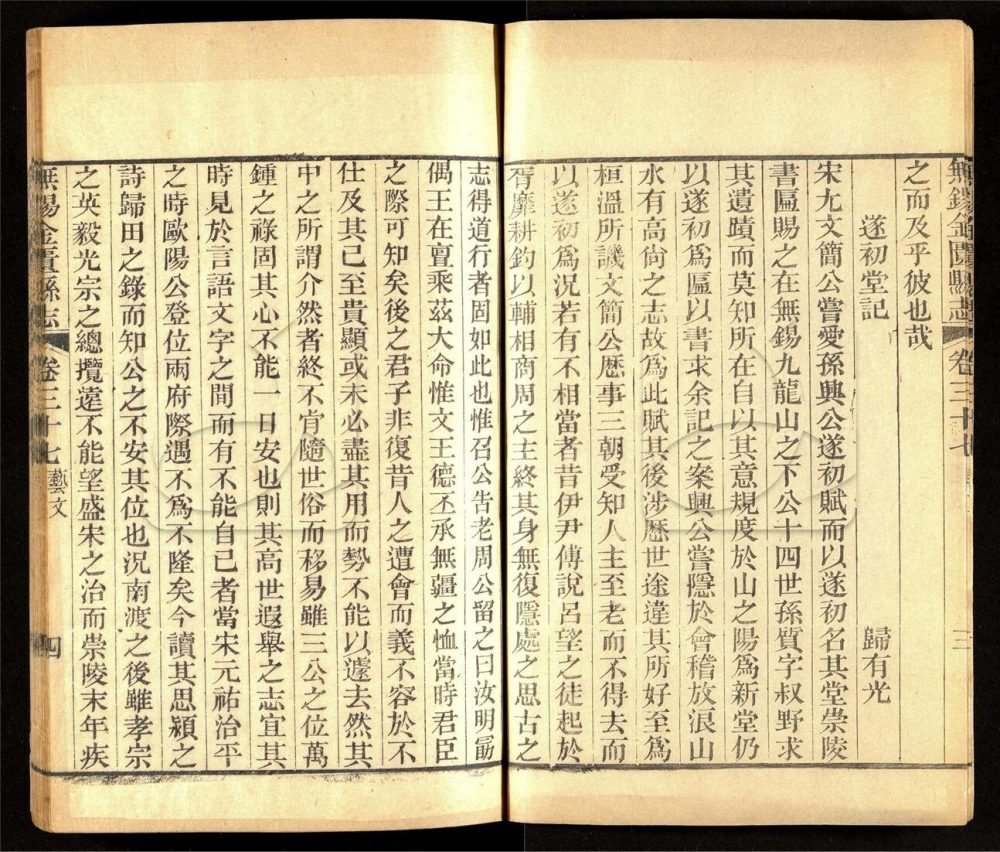 無錫金匱縣志
卷三十七
三
之而及乎彼也哉
遂初堂記
歸有光
宋尤文簡公嘗愛孫興公遂初賦而以遂初名其堂崇陵
書匾賜之在無錫九龍山之下公十四世孫質字叔野求
其遺蹟而莫知所在自以其意規度於山之陽爲新堂仍
以遂初爲匾以書求余記之案興公嘗隱於會稽放浪山
水有高尙之志故爲此賦其後涉歷世途違其所好至爲
桓溫所譏文簡公歷事三朝受知人主至老而不得去而
以遂初爲况若有不相當者昔伊尹傅說呂望之徒起於
胥靡耕釣以輔相商周之主終其身無復隱處之思古之
志得道行者固如此也惟召公告老周公留之曰汝明勗
偶王在亶乘茲大命惟文王德丕承無疆之恤當時君臣
之際可知矣後之君子非復昔人之遭會而義不容於不
仕及其已至貴顯或未必盡其用而勢不能以遽去然其
中之所謂介然者終不肯隨世俗而移易雖三公之位萬
鍾之祿固其心不能一日安也則其高世遐舉之志宜其
時見於言語文字之間而有不能自己者當宋元祐治平
之時歐陽公登位兩府際遇不爲不隆矣今讀其思潁之
詩歸田之錄而知公之不安其位也況南渡之後雖孝宗
之英毅光宗之總攬遠不能望盛宋之治而崇陵末年疾
無錫金匱縣志
卷三十七
藝文
四